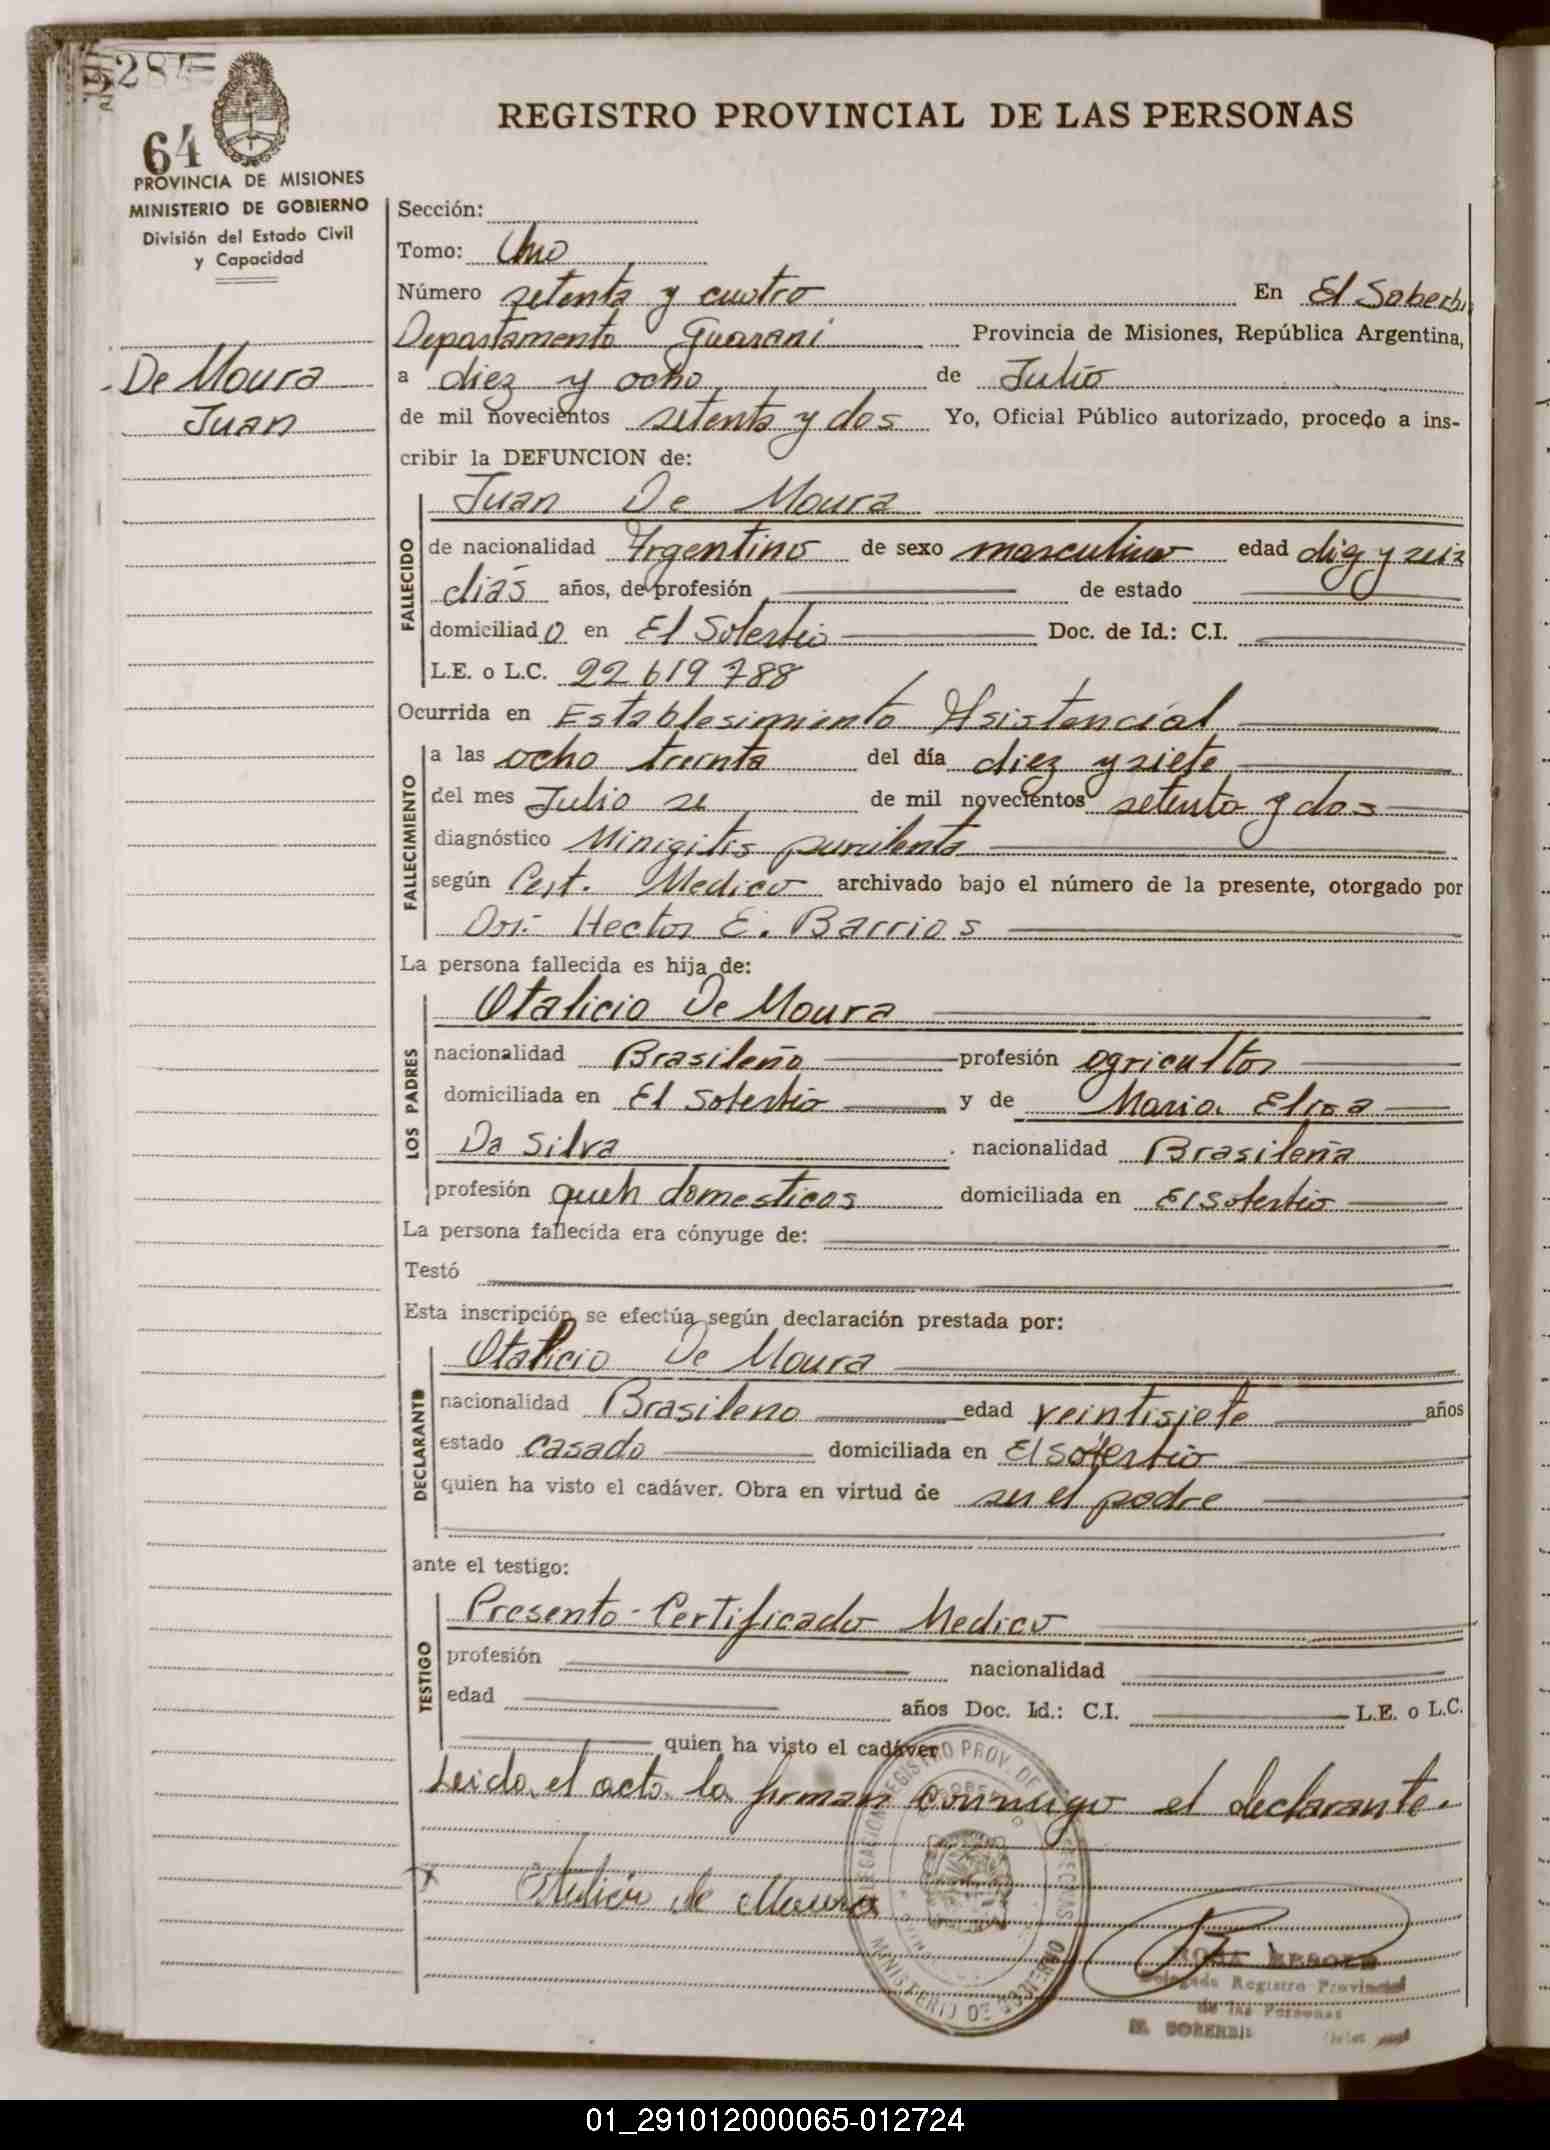 64
REGISTRO PROVINCIAL DE LAS PERSONAS
PROVINCIA DE MISIONES
MINISTERIO DE GOBIERNO
División del Estado Civil
y Capacidad
De Moura
Juan
Sección:
Tomo: Uno
Número setenta y cuatro En El Soberbi
Departamento Guarani Provincia de Misiones, República Argentina,
a diez y ocho de Julio
de mil novecientos setenta y dos Yo, Oficial Público autorizado, procedo a ins-
cribir la DEFUNCION de:
FALLECIDO
Juan De Moura
de nacionalidad Argentino de sexo masculino edad diez y seis
dias años, de profesión de estado
domiciliado en El Soberbio Doc. de Id.: C.I.
L.E. o L.C. 22619788
Ocurrida en Establesimiento Asistencial
FALLECIMIENTO
a las ocho treinta del día diez y siete
del mes Julio de mil novecientos setenta y dos
diagnóstico Minigitis purulenta
según Cert. Medico archivado bajo el número de la presente, otorgado por
Dr. Hector E. Barrios
La persona fallecida es hija de:
LOS PADRES
Otalicio De Moura
nacionalidad Brasileño profesión agricultor
domiciliada en El Soberbio y de Maria Elisa
Da Silva nacionalidad Brasileña
profesión queh domesticos domiciliada en El Soberbio
La persona fallecida era cónyuge de:
Testó
Esta inscripción se efectúa según declaración prestada por:
DECLARANTE
Otalicio De Moura
nacionalidad Brasileno edad veintisiete años
estado casado domiciliada en El Soberbio
quien ha visto el cadáver. Obra en virtud de ser el padre
ante el testigo:
TESTIGO
Presento-Certificado Medico
profesión nacionalidad
edad años Doc. Id.: C.I. L.E. o L.C.
quien ha visto el cadáver
Leido el acto la firman conmigo el declarante.
Otalicio de Moura
MINISTERIO DE GOBIERNO
Delegada Registro Provincial
de las Personas
01_291012000065-012724